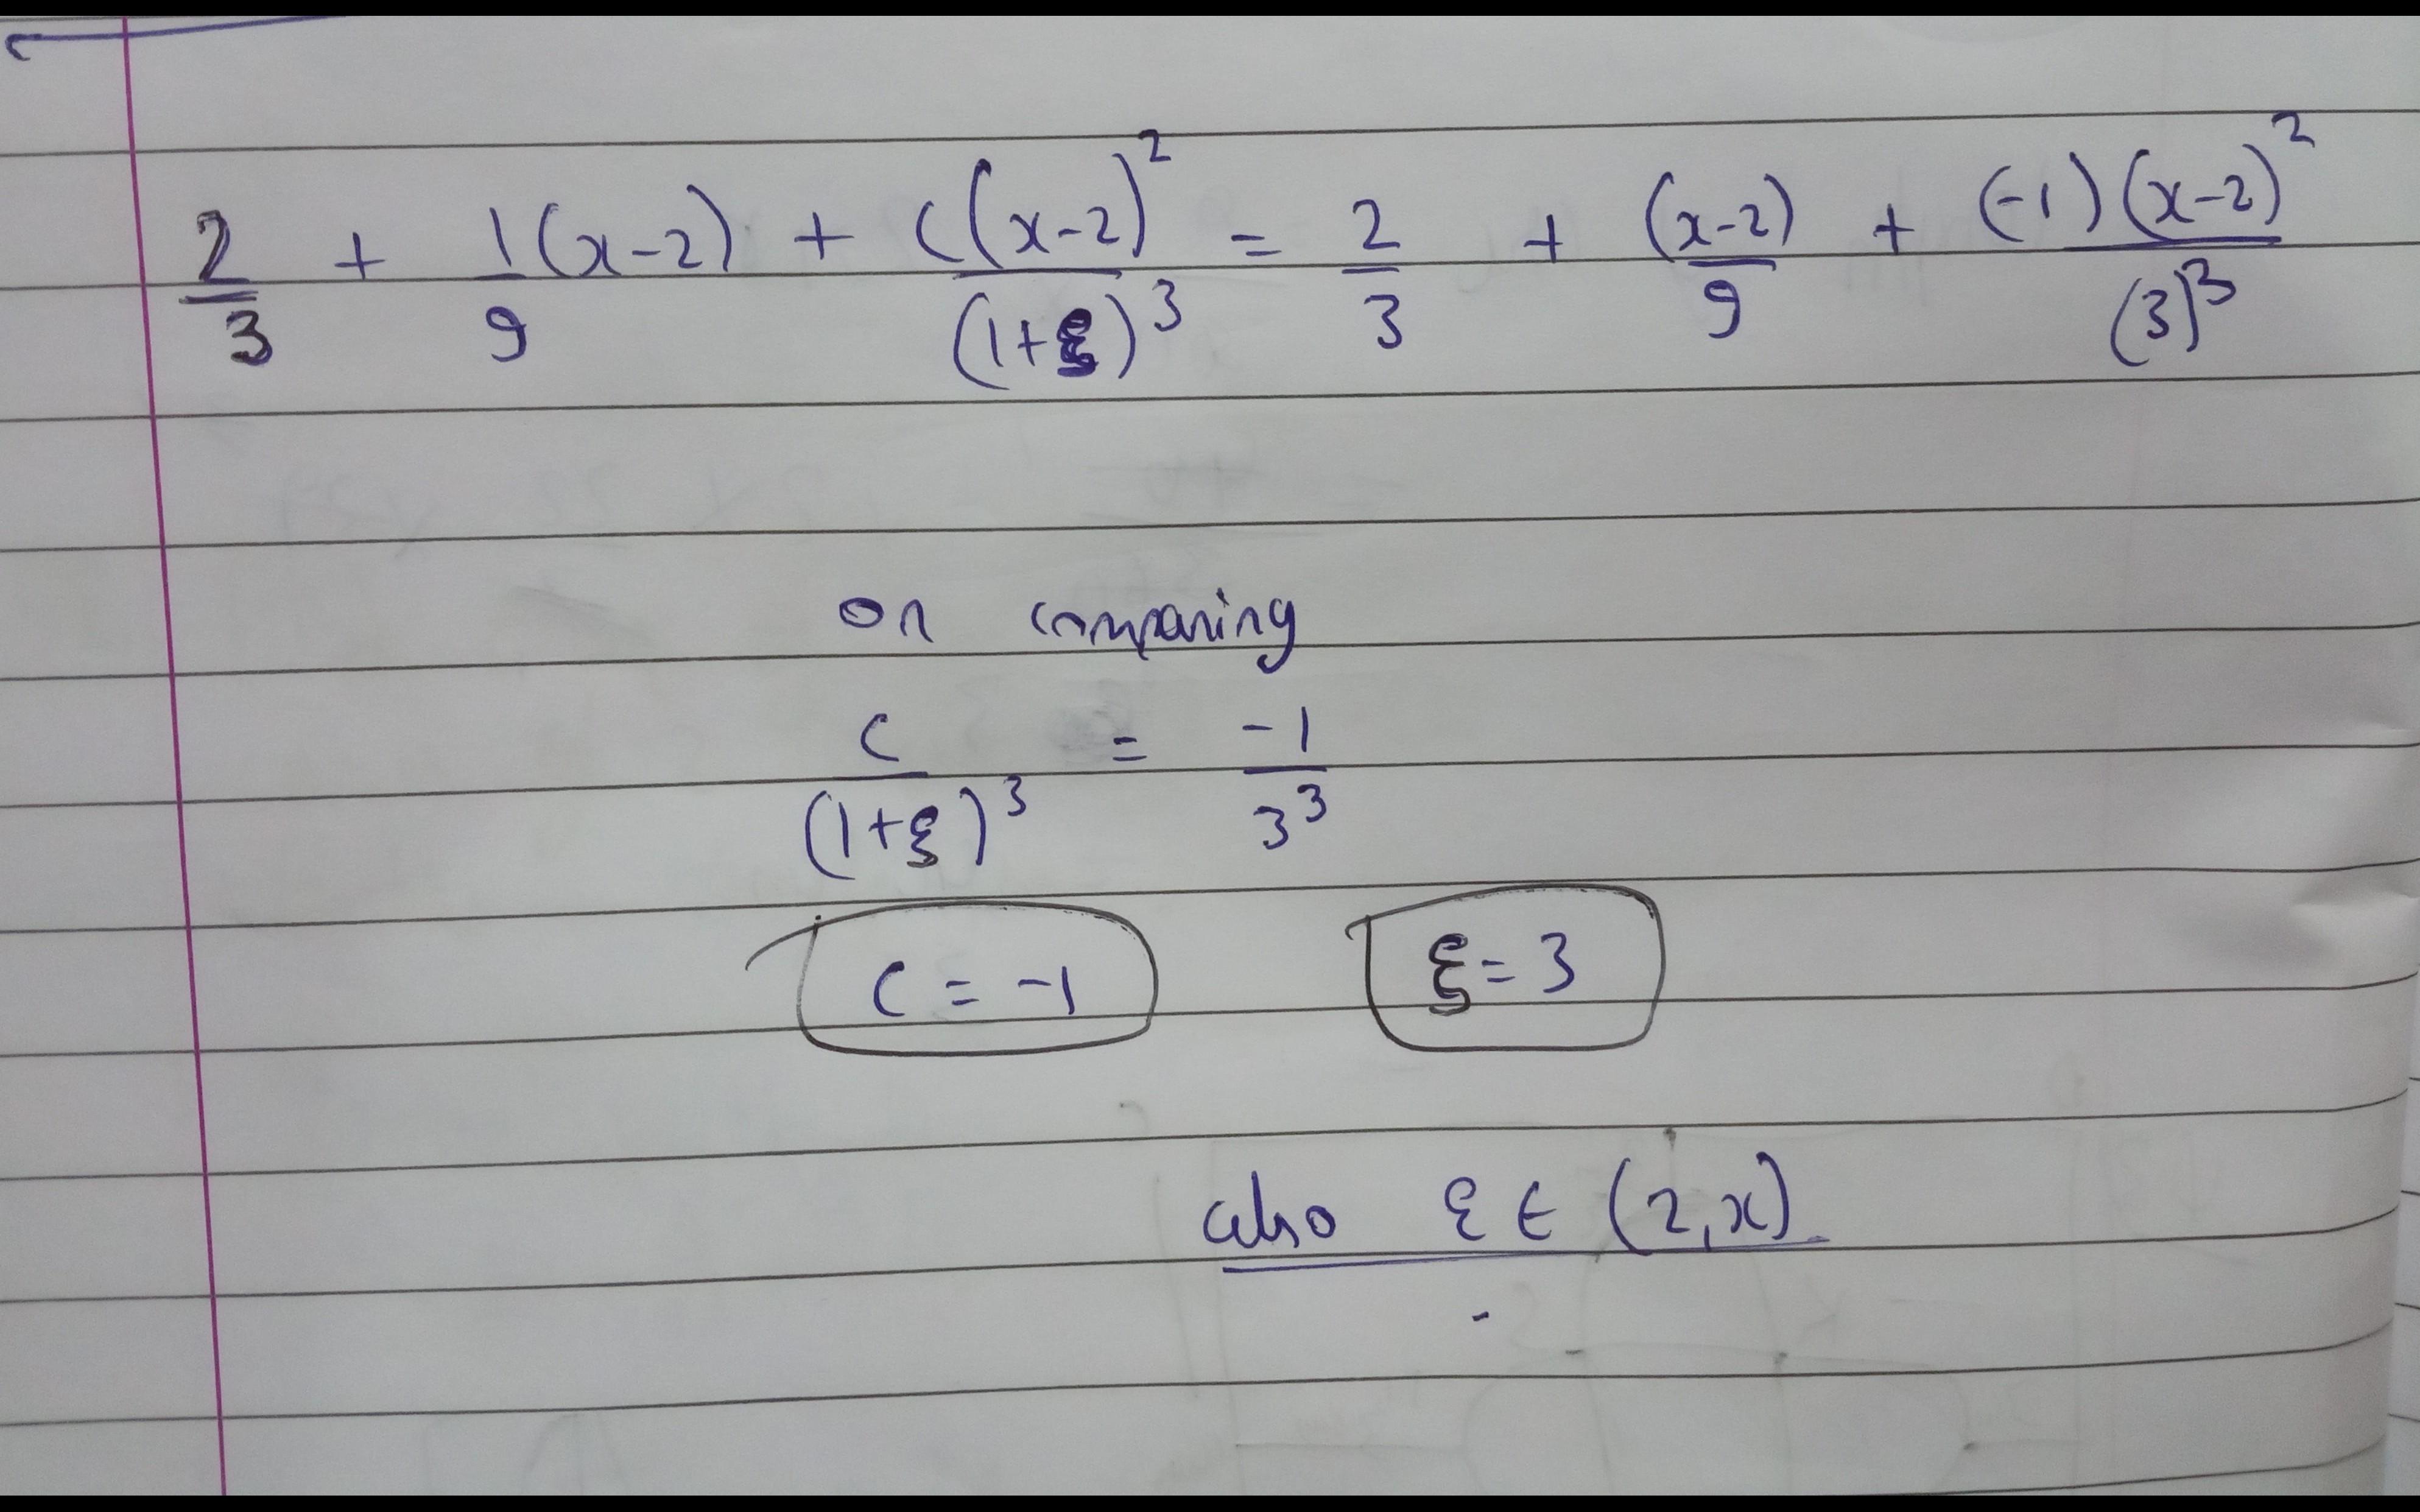 2/3 + 1/9(x-2) + c(x-2)²/(1+ξ)³ = 2/3 + (x-2)/9 + (-1)(x-2)²/(3)³
on comparing
c/(1+ξ)³ = -1/3³
c = -1 ξ = 3
also ξ ∈ (2,x)